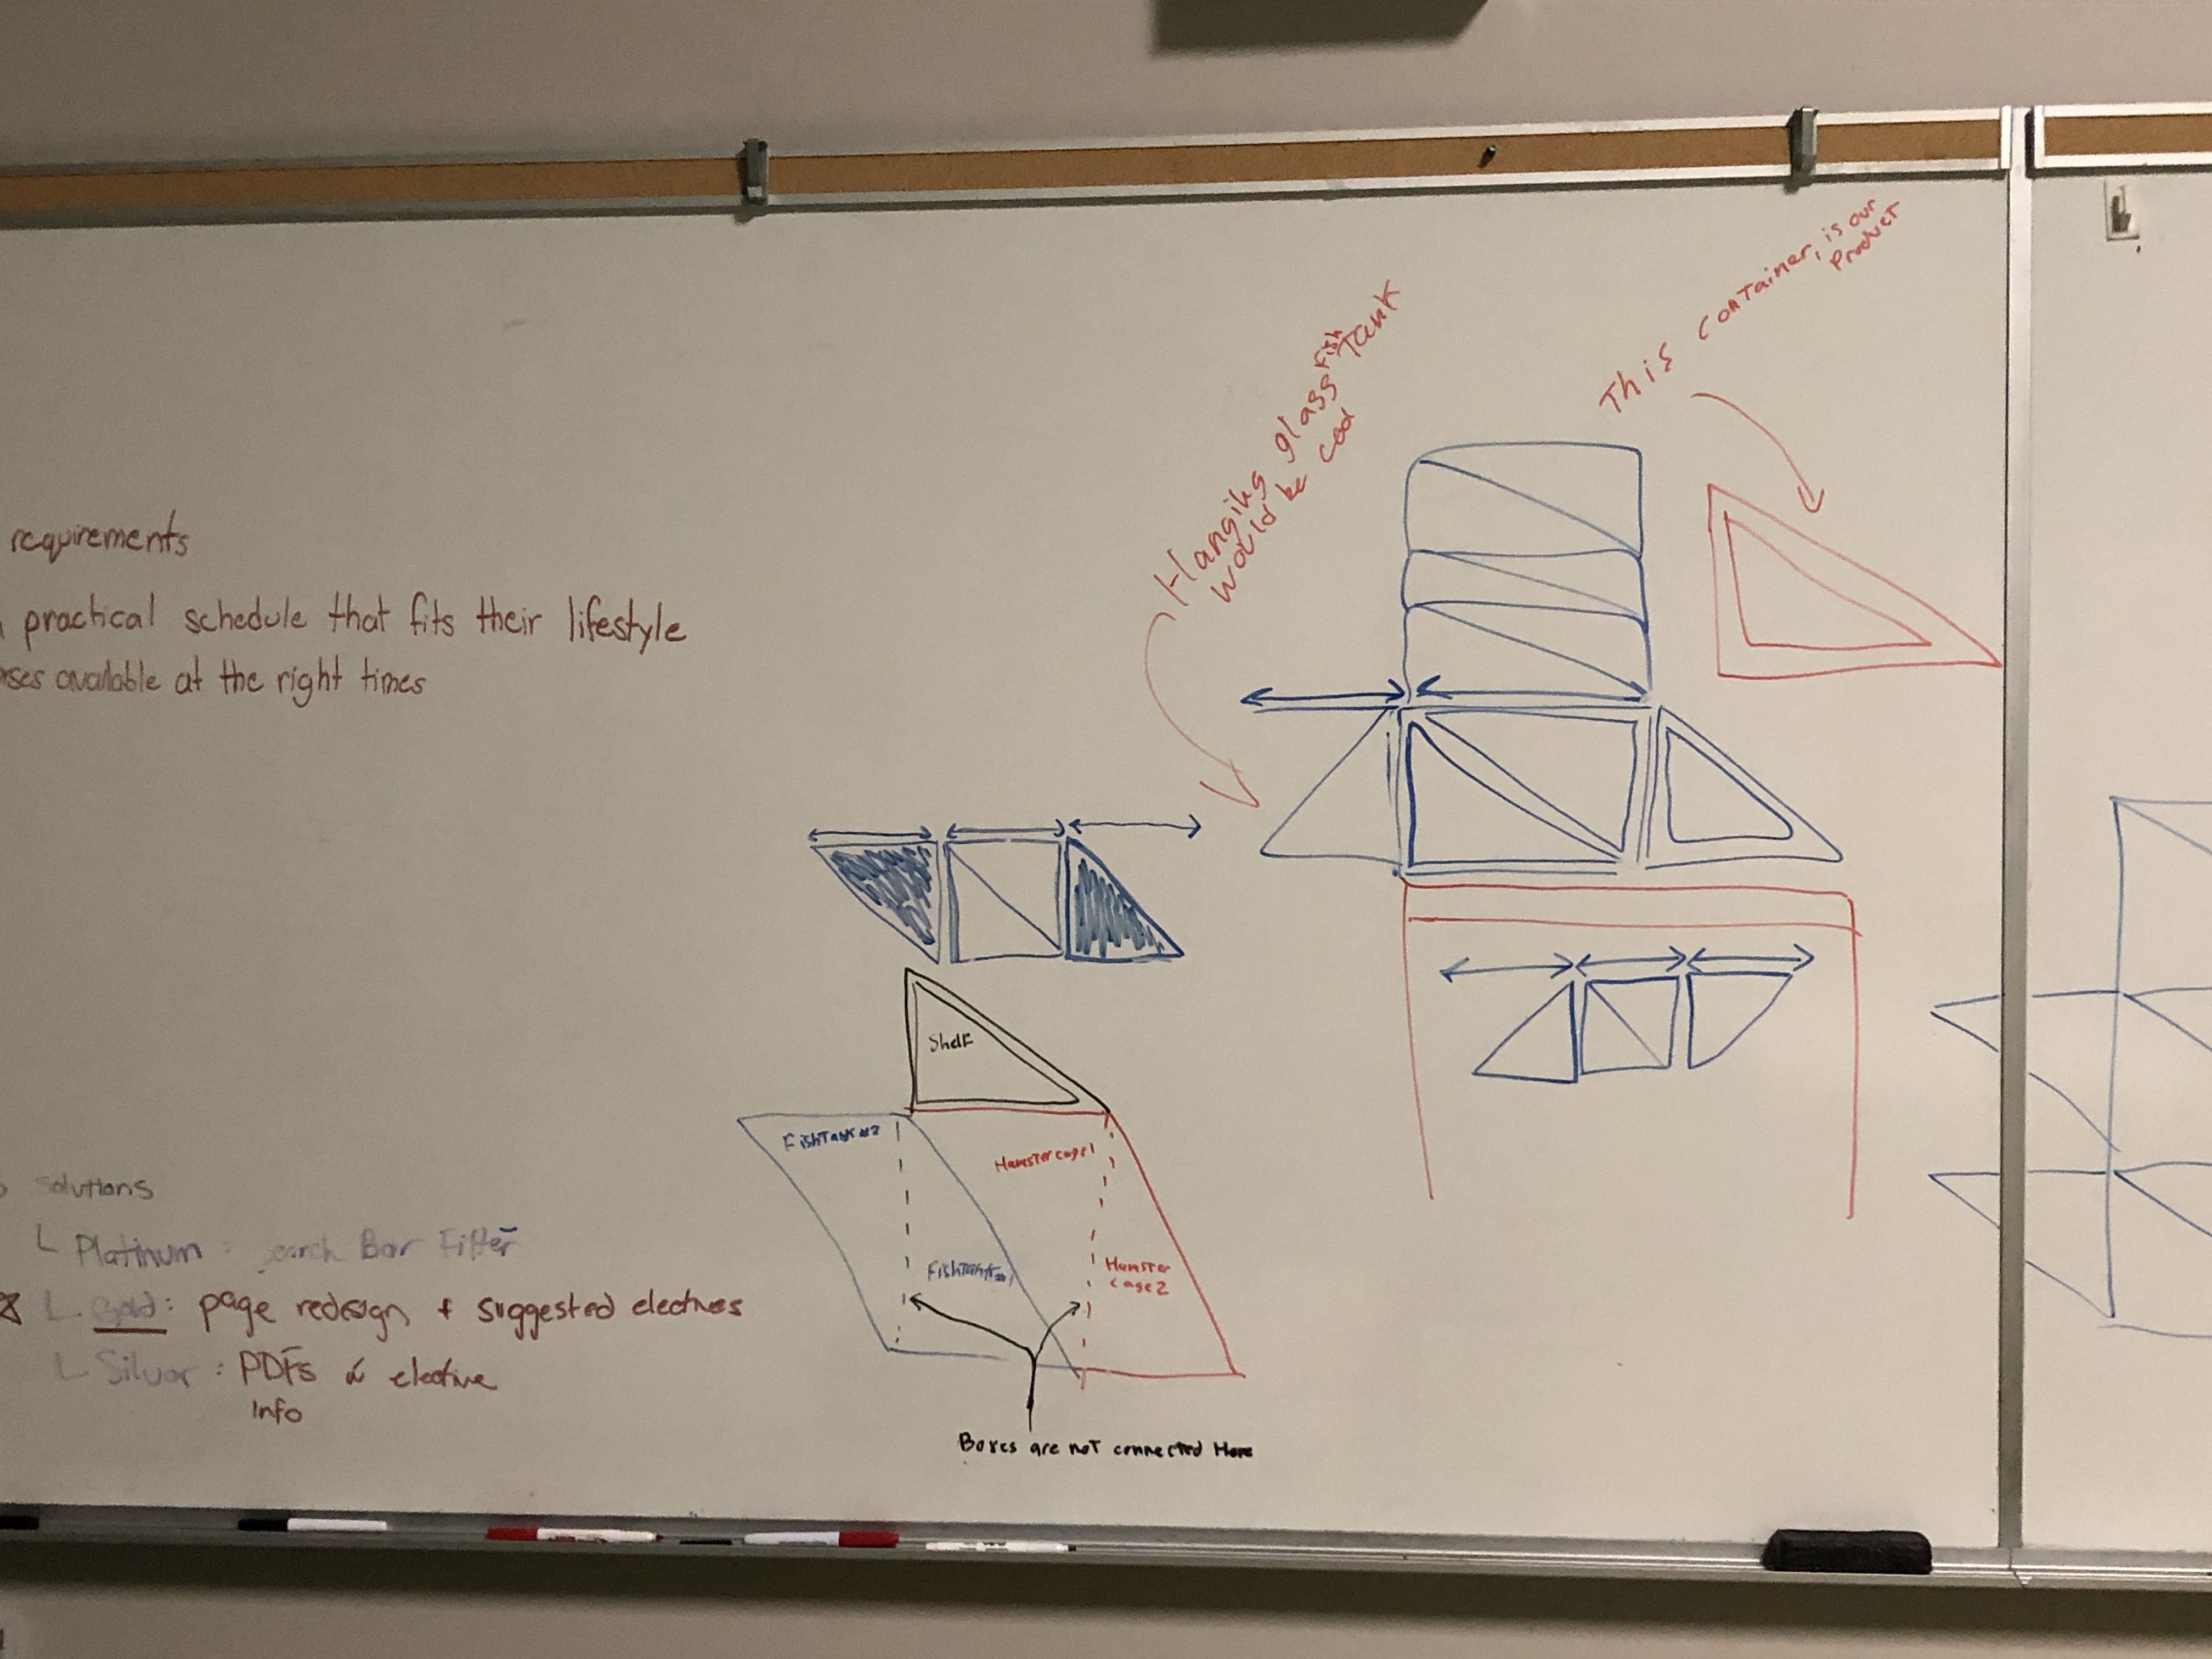 requirements
practical schedule that fits their lifestyle
available at the right times
Solutions
Platinum : earch Bar Filter
Gold : page redesign + suggested electives
Silver : PDFs w elective
Info
Hanging glass Fish Tank
would be cool
This container, is our
Product
Shelf
FishTank #2
Hamster cage 1
FishTank #1
Hamster
Cage 2
Boxes are not connected Here